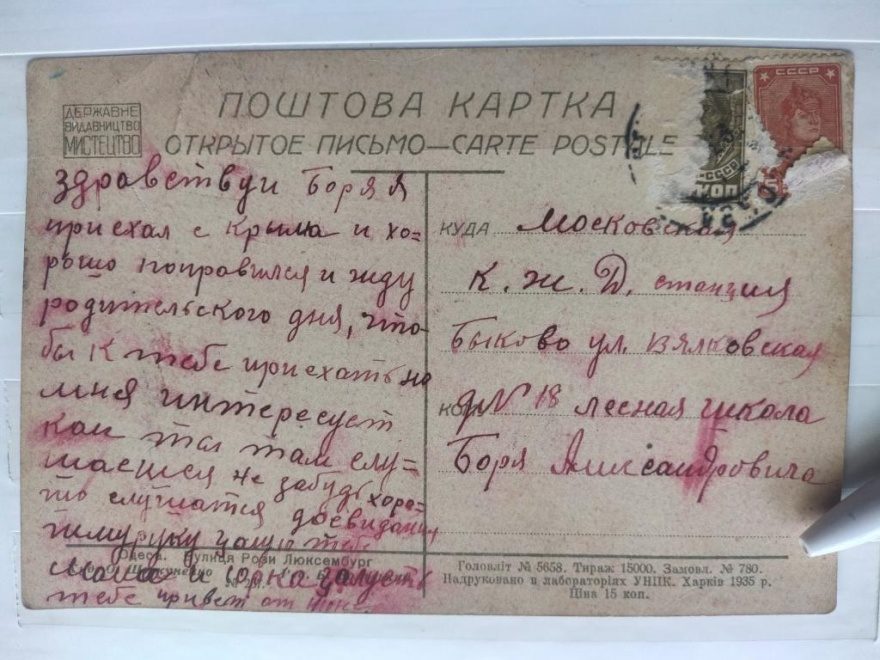 ДЕРЖАВНЕ
ВИДАВНИЦТВО
МИСТЕЦТВО
ПОШТОВА КАРТКА
ОТКРЫТОЕ ПИСЬМО—CARTE POSTALE
СССР
СССР
КОП
здравствуи Боря я
приехал с крыма и хо=
рошо поправился и жду
родительского дня, что
бы к тебе приехать но
мня интересует
как ты там слу=
шаешся не забудь хоро=
шо слушатся досвидания
жму руку
мама и Юрка
тебе привет от
КУДА Московская
К. ж. Д. станция
Быково ул. вялковская
д N 18 лесная школа
Боря Александровича
Одеса. Вулиця Рози Люксембург
Головліт № 5658. Тираж 15000. Замовл. № 780.
Надруковано в лабораторіях УНІІК. Харків 1935 р.
Ціна 15 коп.